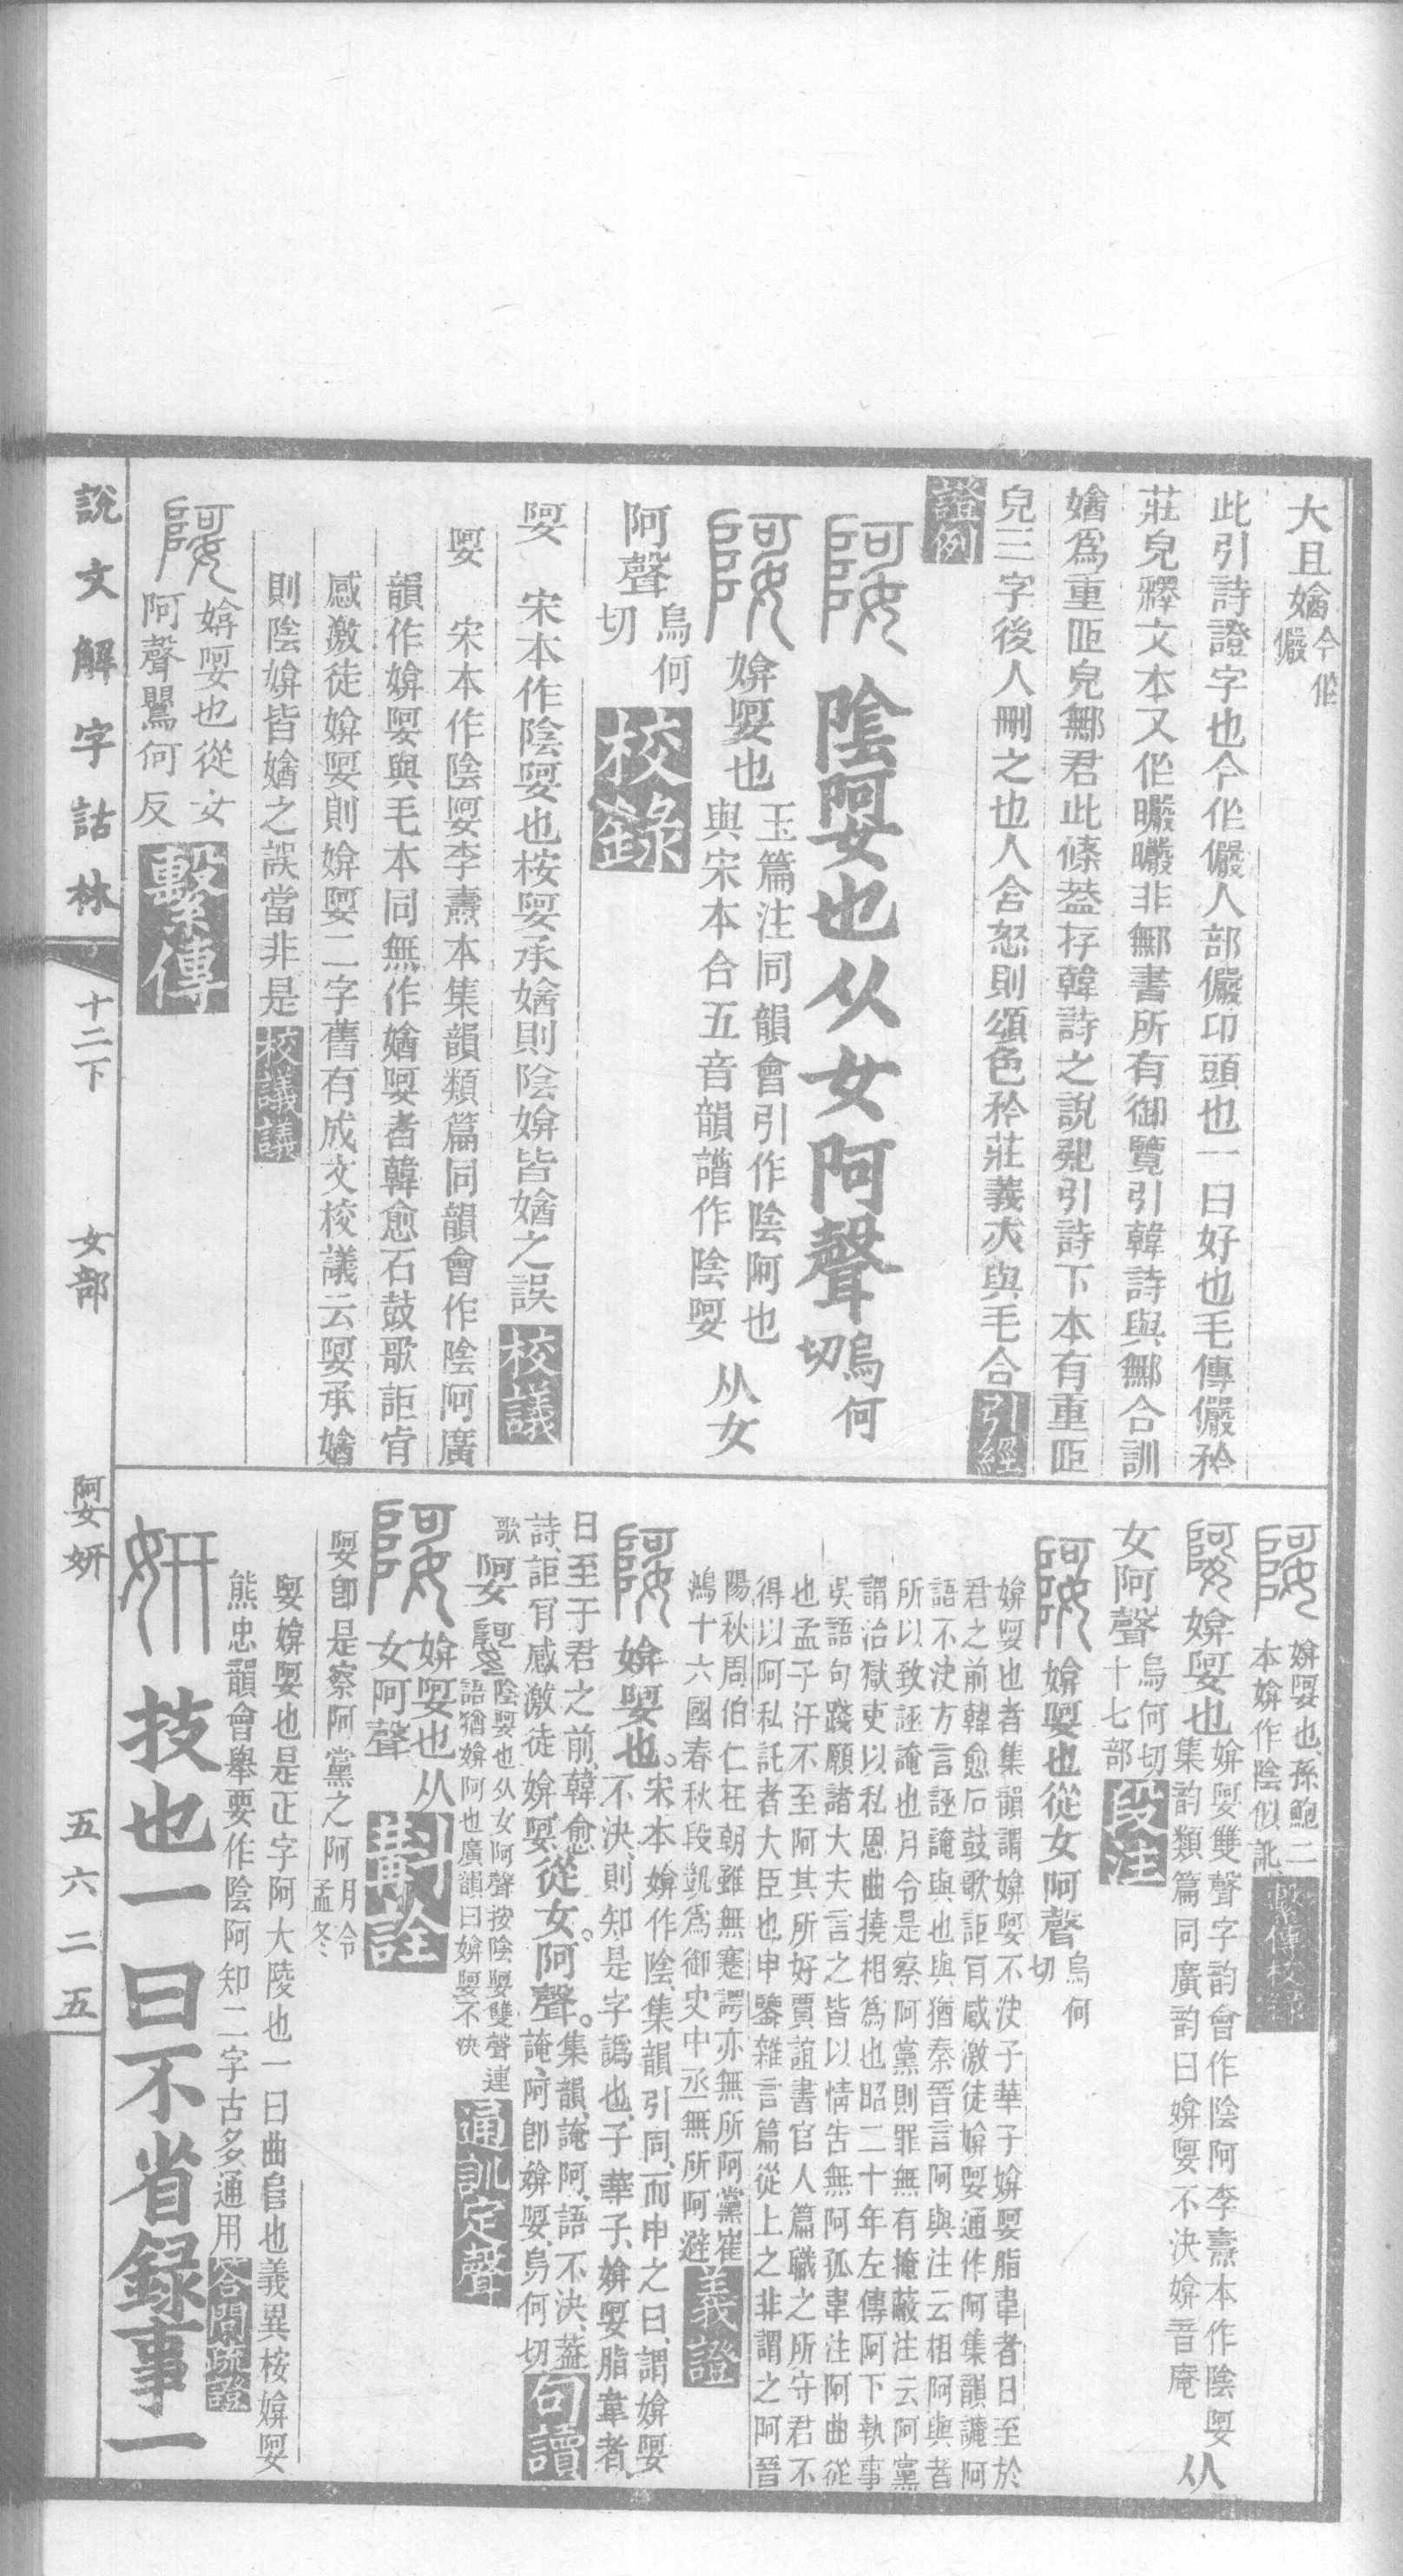 大且嬌今作儼
此引詩證字也今作儼人部儼卬頭也一曰好也毛傳儼矜
莊皃釋文本又作曮曮非鄦書所有御覽引韓詩與鄦合訓
為重匝皃鄦君此條葢存韓詩之說矤引詩下本有重匝
皃三字後人刪之也人含怒則頌色矜莊義亦與毛合引經
證例
娿 陰娿也从女阿聲烏何切
娿 媕娿也玉篇注同韻會引作陰阿也與宋本合五音韻譜作陰娿从女
阿聲烏何切校錄
娿 宋本作陰娿也桉娿承媕則陰媕皆媕之誤校議
娿 宋本作陰娿李燾本集韻類篇同韻會作陰阿廣
韻作媕娿與毛本同無作媕娿者韓愈石鼓歌詎肯
感激徒媕娿則媕娿二字舊有成文校議云娿承媕
則陰媕皆媕之誤當非是校議議
娿 媕娿也從女阿聲鷖何反繫傳
娿 媕娿也孫鮑二本媕作陰似訛繫傳校錄
娿 媕娿也媕娿雙聲字韵會作陰阿李燾本作陰娿集韵類篇同廣韵曰媕娿不決媕音庵从
女阿聲烏何切十七部段注
娿 媕娿也從女阿聲烏何切
媕娿也者集韻謂媕娿不決子華子媕娿脂韋者日至於
君之前韓愈石鼓歌詎肯感激徒媕娿通作阿集韻䛳阿
語不決方言誣䛳與也與猶秦晉言阿與注云相阿與者
所以致誣䛳也月令是察阿黨則罪無有掩蔽注云阿黨
謂治獄吏以私恩曲撓相為也昭二十年左傳阿下執事
吳語句踐願諸大夫言之皆以情告無阿孤韋注阿曲從
也孟子汙不至阿其所好賈誼書官人篇職之所守君不
得以阿私託者大臣也申鑒雜言篇從上之非謂之阿晉
陽秋周伯仁在朝雖無謇諤亦無所阿黨崔
鴻十六國春秋段凱為御史中丞無所阿避義證
娿 媕娿也。宋本媕作陰、集韻引同、而申之曰、謂媕娿不決、則知是字譌也、子華子、媕娿脂韋者、
日至于君之前、韓愈詩、詎肯感激徒媕娿從女。阿聲。集韻、䛳阿、語不決、葢䛳、阿卽媕娿、烏何切句讀
歌 娿 陰娿也从女阿聲按陰娿雙聲連語猶媕阿也廣韻曰媕娿不決通訓定聲
娿 媕娿也从女阿聲斠詮
娿卽是察阿黨之阿月令孟冬
娿媕娿也是正字阿大陵也一曰曲𨸏也義異桉媕娿
熊忠韻會舉要作陰阿知二字古多通用答問疏證
妍 技也一曰不省録事一
說文解字詁林 十二下 女部 娿妍 五六二五